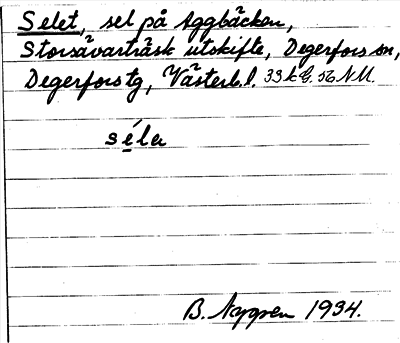 Selet, sel på Aggbäcken,
Storsävarträsk utskifte, Degerfors sn,
Degerfors tg, Västerb. l. 33 k G. 56 N M.
séla
B. Nygren 1934.